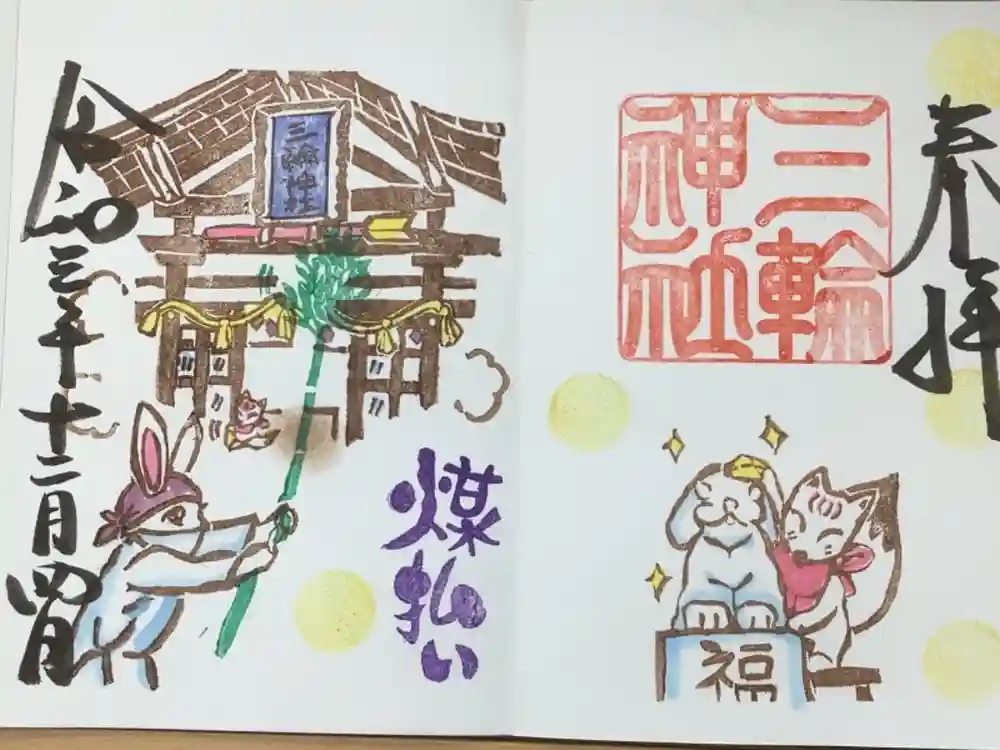 奉拝
三輪
神社
福
三輪社
煤払い
令和三年十二月四日